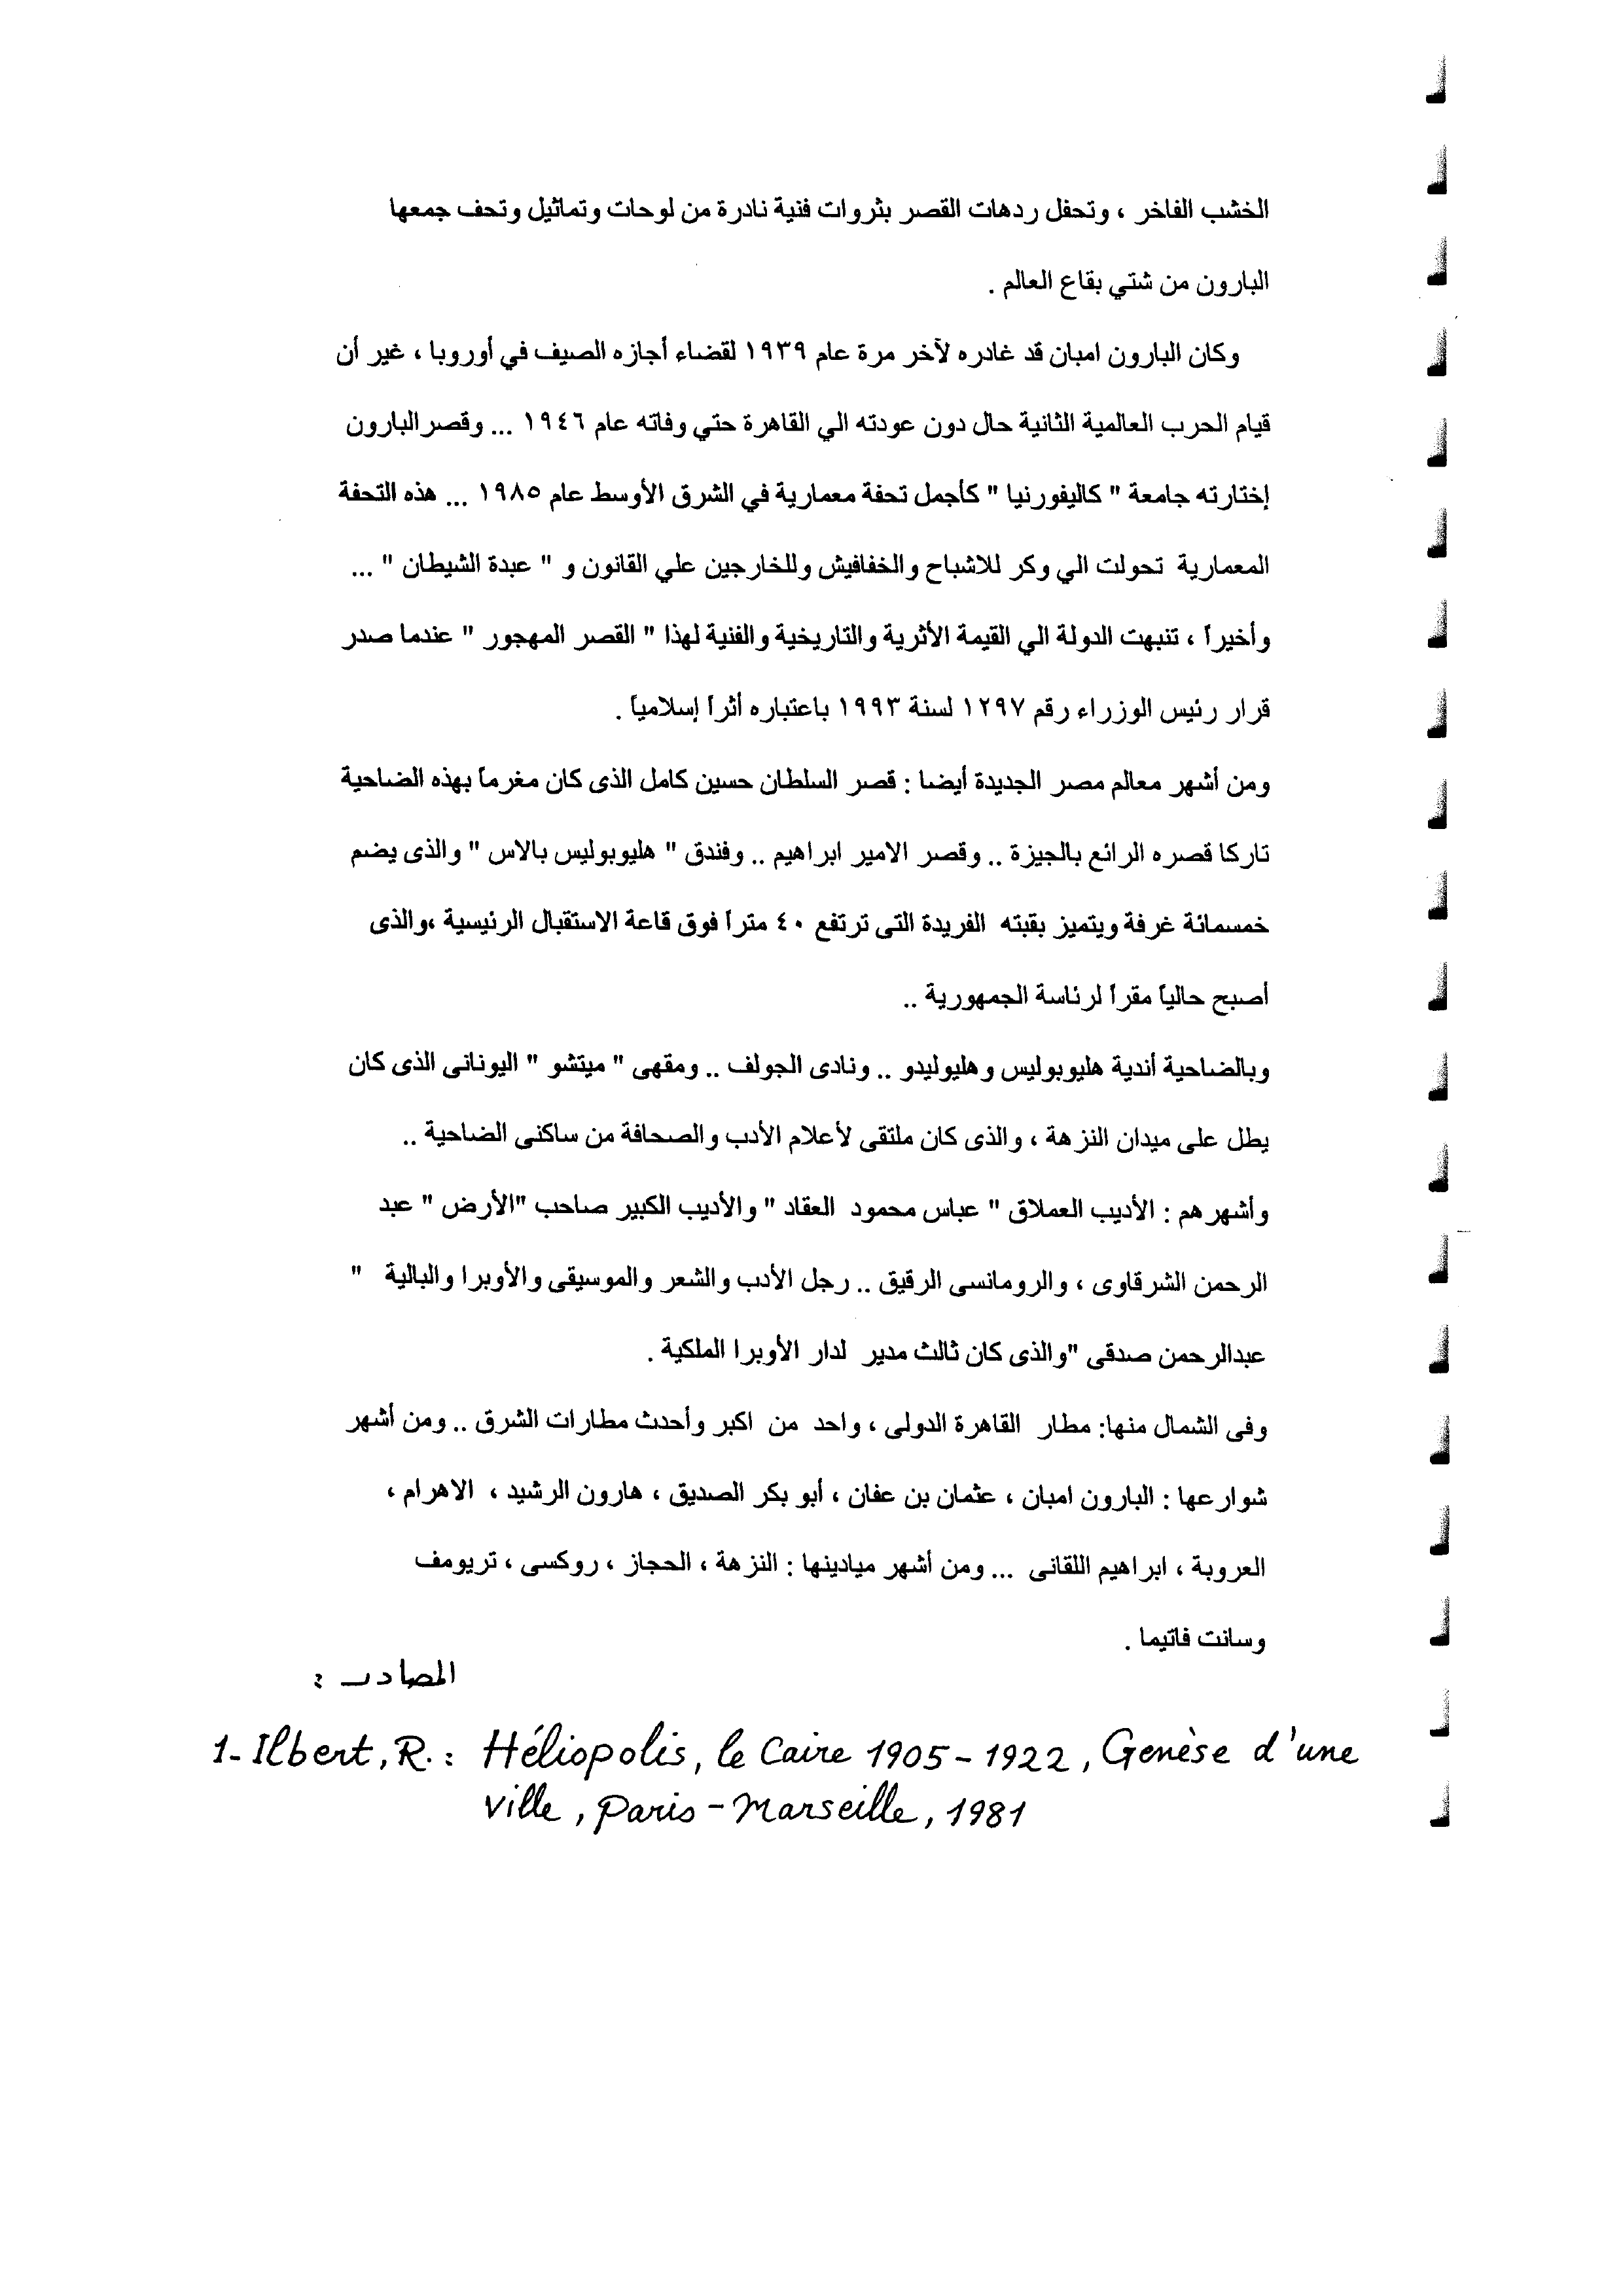 الخشب الفاخر ، وتحفل ردهات القصر بثروات فنية نادرة من لوحات وتماثيل وتحف جمعها
البارون من شتي بقاع العالم .
وكان البارون امبان قد غادره لآخر مرة عام ١٩٣٩ لقضاء أجازه الصيف في أوروبا ، غير أن
قيام الحرب العالمية الثانية حال دون عودته الي القاهرة حتي وفاته عام ١٩٤٦ ... وقصر البارون
إختارته جامعة " كاليفورنيا " كأجمل تحفة معمارية في الشرق الأوسط عام ١٩٨٥ ... هذه التحفة
المعمارية تحولت الي وكر للاشباح والخفافيش وللخارجين علي القانون و " عبدة الشيطان " ...
وأخيراً ، تنبهت الدولة الي القيمة الأثرية والتاريخية والفنية لهذا " القصر المهجور " عندما صدر
قرار رئيس الوزراء رقم ١٢٩٧ لسنة ١٩٩٣ باعتباره أثراً إسلامياً .
ومن أشهر معالم مصر الجديدة أيضا : قصر السلطان حسين كامل الذى كان مغرماً بهذه الضاحية
تاركا قصره الرائع بالجيزة .. وقصر الامير ابراهيم .. وفندق " هليوبوليس بالاس " والذى يضم
خمسمائة غرفة ويتميز بقبته الفريدة التى ترتفع ٤٠ متراً فوق قاعة الاستقبال الرئيسية ،والذى
أصبح حالياً مقراً لرئاسة الجمهورية ..
وبالضاحية أندية هليوبوليس وهليوليدو .. ونادى الجولف .. ومقهى " ميتشو " اليونانى الذى كان
يطل على ميدان النزهة ، والذى كان ملتقى لأعلام الأدب والصحافة من ساكنى الضاحية ..
وأشهرهم : الأديب العملاق " عباس محمود العقاد " والأديب الكبير صاحب "الأرض " عبد
الرحمن الشرقاوى ، والرومانسى الرقيق .. رجل الأدب والشعر والموسيقى والأوبرا والبالية "
عبدالرحمن صدقى "والذى كان ثالث مدير لدار الأوبرا الملكية .
وفى الشمال منها: مطار القاهرة الدولى ، واحد من اكبر وأحدث مطارات الشرق .. ومن أشهر
شوارعها : البارون امبان ، عثمان بن عفان ، أبو بكر الصديق ، هارون الرشيد ، الاهرام ،
العروبة ، ابراهيم اللقانى ... ومن أشهر ميادينها : النزهة ، الحجاز ، روكسى ، تريومف
وسانت فاتيما .
المصادر :
1- Ilbert, R. : Héliopolis, le Caire 1905-1922, Genèse d'une
ville, Paris-Marseille, 1981